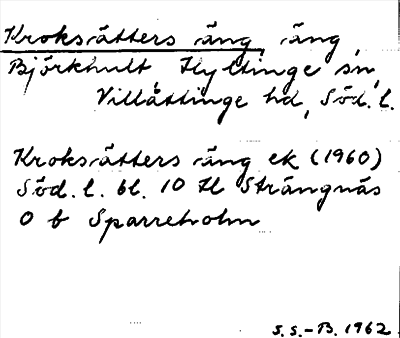 Kroksätters äng, äng,
Björkhult Hyltinge sn,
Villåttinge hd, Söd. l.
Kroksätters äng ek (1960)
Söd. l. bl. 10 H Strängnäs
O b Sparreholm
S.S.-B. 1962